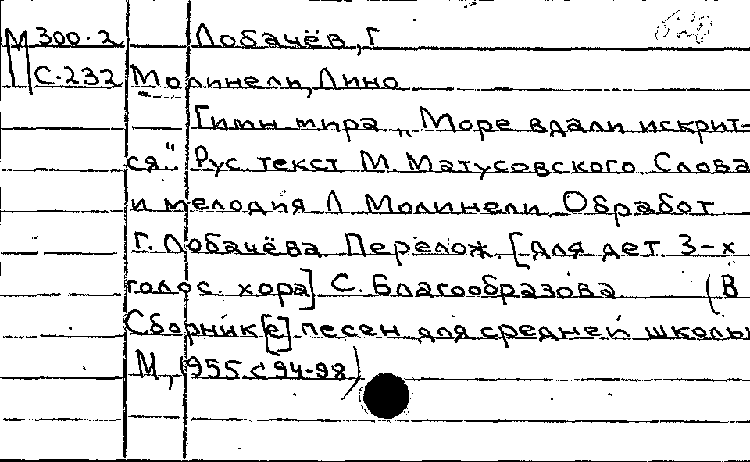 М 300.2 Лобачёв, Г
С.232 Молинели, Лино
Гимн мира „Море вдали искрит-
ся". Рус текст М. Матусовского Слова
и мелодия Л Молинели Обработ
Г. Лобачёва Перелож. [для дет 3-х
голос. хора] С. Благообразова (В
Сборник[е] песен для средней школы
М, 1955. с 94-98)